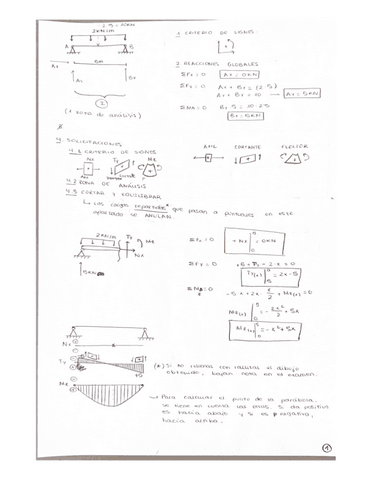 2·5 = 10KN
2KN/m
A
B
5m
Ax
Ay
By
1
(1 zona de análisis)
1 CRITERIO DE SIGNOS
2 REACCIONES GLOBALES
ΣFx = 0 Ax = 0KN
ΣFy = 0 Ay + By = (2·5)
Ay + By = 10 → Ay = 5KN
ΣMA = 0 By·5 = 10·2.5
By = 5KN
4 SOLICITACIONES
4.1 CRITERIO DE SIGNOS
Nx Ty Mz
AXIL CORTANTE FLECTOR
4.2 ZONA DE ANÁLISIS
4.3 CORTAR Y EQUILIBRAR
Las cargas repartidas que pasan a puntuales en este
apartado se ANULAN.
2KN/m
Ty
Mz
Nx
5KN
ΣFx = 0 + Nx = 0KN
ΣFy = 0 -2·x = 0
Ty(x) = 2x-5
ΣMz = 0 -5x + 2x · x/2 + Mz(x) = 0
Mz(x) = -2x²/2 + 5x
Mz(x) = -x² + 5x
Nx
Ty
Mz
(*) Si te colocas con calculas el dibujo
obtenido, bajan nota en el examen.
Para calcular el punto de la parábola,
se tiene en cuenta si da positivo
es hacia abajo y si es negativo,
hacia arriba.
1